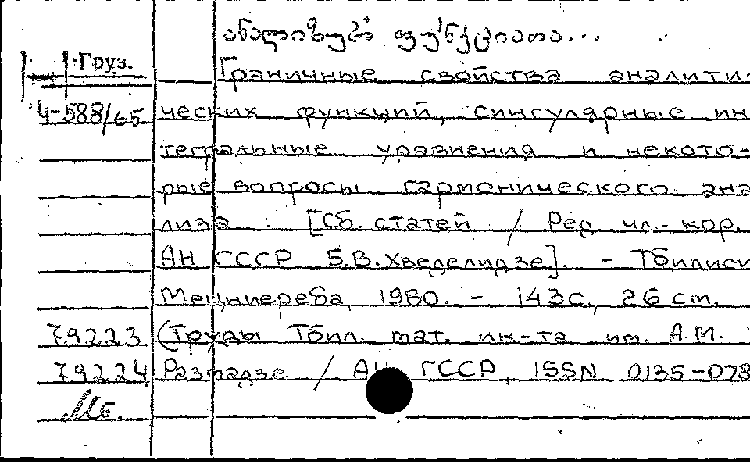 ანალიზურ ფუნქციათა...
Груз.
Граничные свойства аналити-
Ч-588/65 ческих функций, сингулярные ин
тегральные уравнения и некото-
рые вопросы гармонического ана
лиза. [Сб. статей / Ред. чл.-кор.
АН ГССР Б.В. Хведелидзе]. - Тбилиси
Мецниереба, 1980. - 143с., 26 см.
79223 (Труды Тбил. мат. ин-та им. А.М.
79224 Размадзе / АН ГССР, ISSN 0135-078